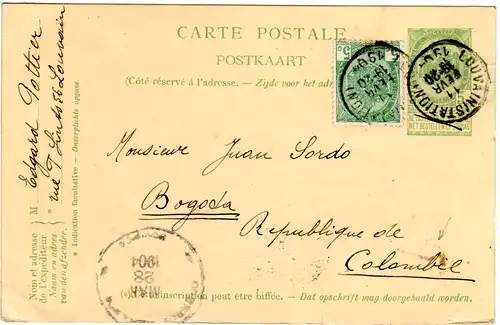 CARTE POSTALE
POSTKAART
(Côté réservé à l'adresse. – Zijde voor het adr
Monsieur Juan Sordo
Bogoda
Republique de
Colombie
(*) inscription peut être biffée. – Dat opschrift mag doorgehaald worden.
M Edgard Pottier
rue
Louvain
* Indication facultative – Onverplichte opgave.
Nom et adresse
de l'expéditeur.
Naam en adres
van den afzender.
5
LOUVAIN (STATION)
11
1904
MAR
28
1904